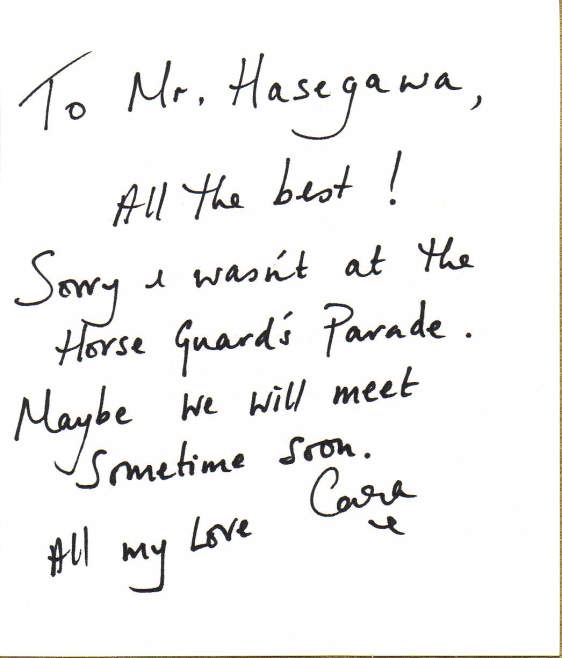 To Mr. Hasegawa,
All the best!
Sorry i wasn't at the
Horse Guard's Parade.
Maybe we will meet
Sometime soon.
All my Love Cara